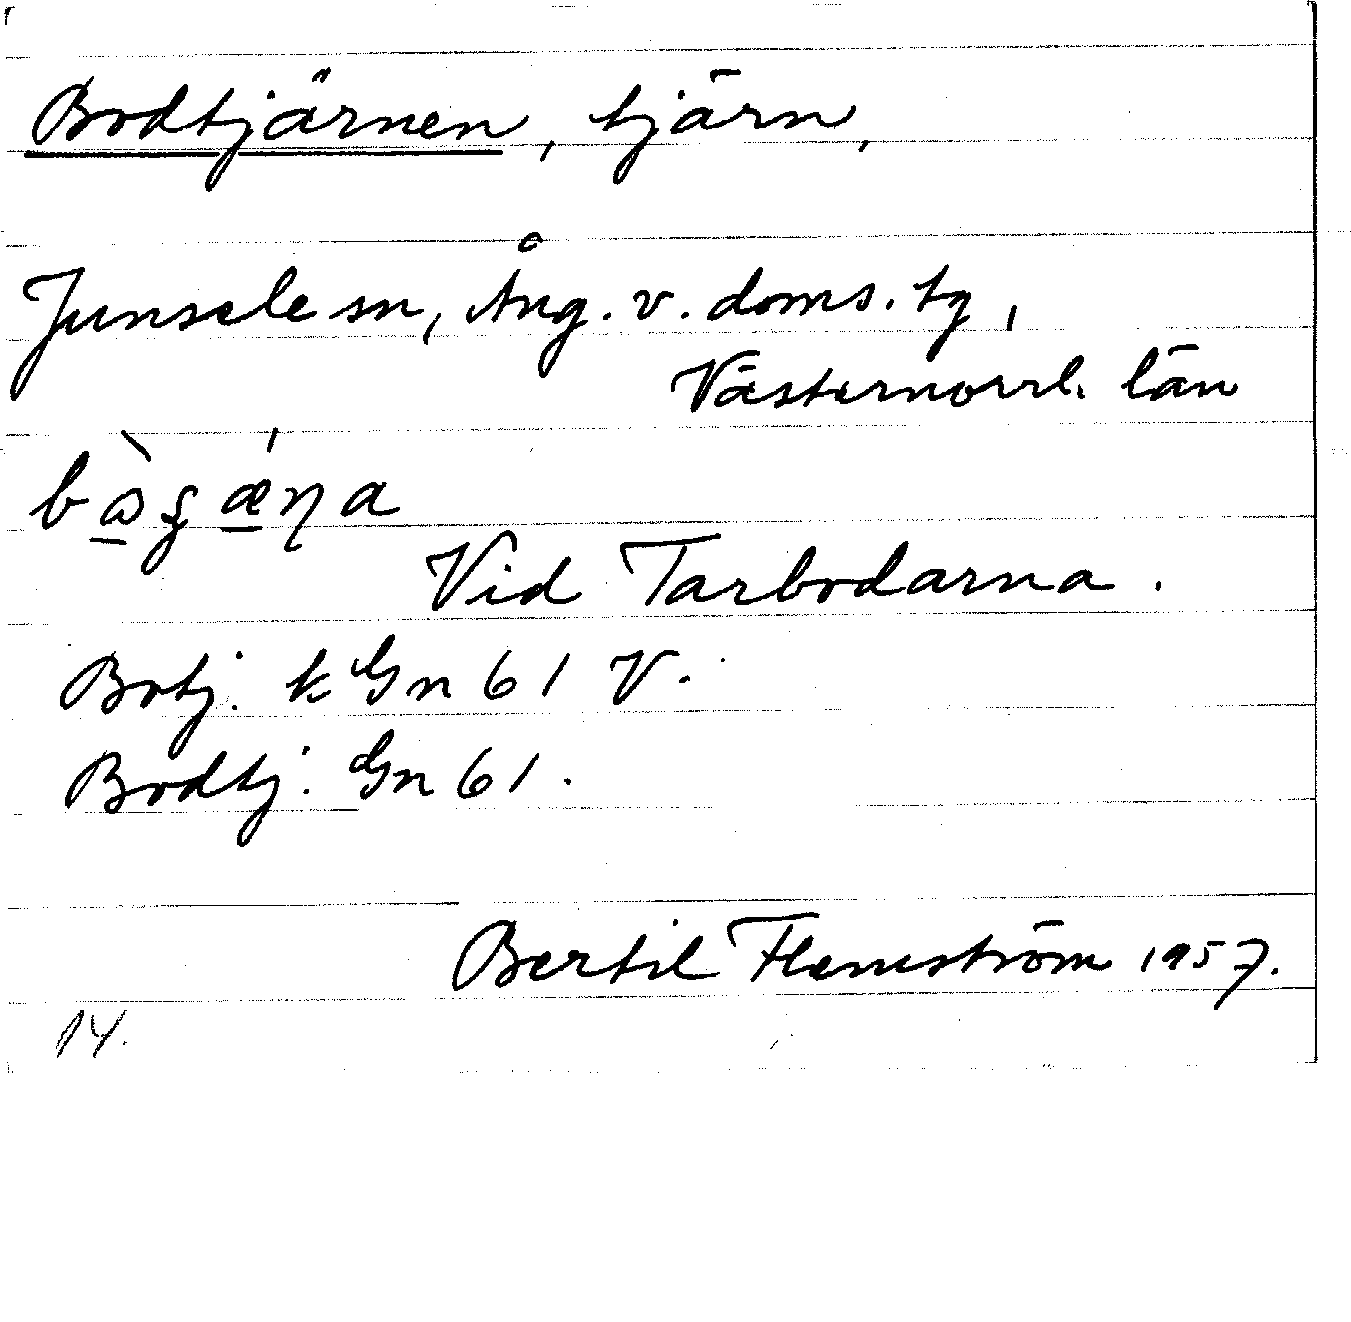 Bodtjärnen, tjärn,
Junsele sn, Ång. v. doms. tg,
Västernorrl. län
Vid Tarbodarna.
Botj. k Gn 61 V.
Bodtj. Gn 61.
Bertil Flemström 1957.
14.